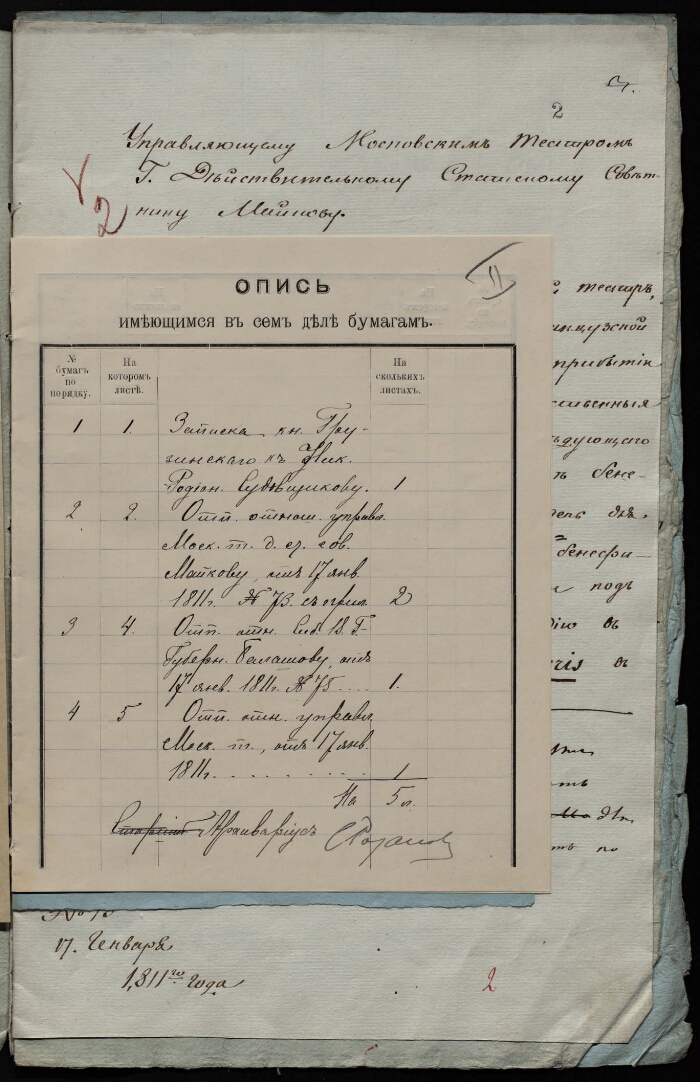 2
Управляющему Московскимъ Театромъ
Г. Дѣйствительному Статскому Совѣт-
нику Майкову.
2
II
ОПИСЬ
имѣющимся въ семъ дѣлѣ бумагамъ.
№ бумагъ по порядку.
На которомъ листѣ.
На сколькихъ листахъ.
1 1. Записка кн. Гру-
зинскаго къ
Родіон. Судовщикову. 1
2 2. Отп. отнош. управл.
Моск. т. д. ст. сов.
Майкову, отъ 17 янв.
1811г. № 73. 2
3 4. Отп. отн. Г-
Губерн. Балашову, отъ
17 янв. 1811г. № 75 .... 1.
4 5 Отп. отн. управл.
Моск. т., отъ 17 янв.
1811г. . . . . . . . . 1
На 5 л.
Архиваріусъ
театръ,
прибытіи
дующаго
бене-
день для
бенефи-
подъ
въ
ris въ
по
17. Генваря
1811го года
2